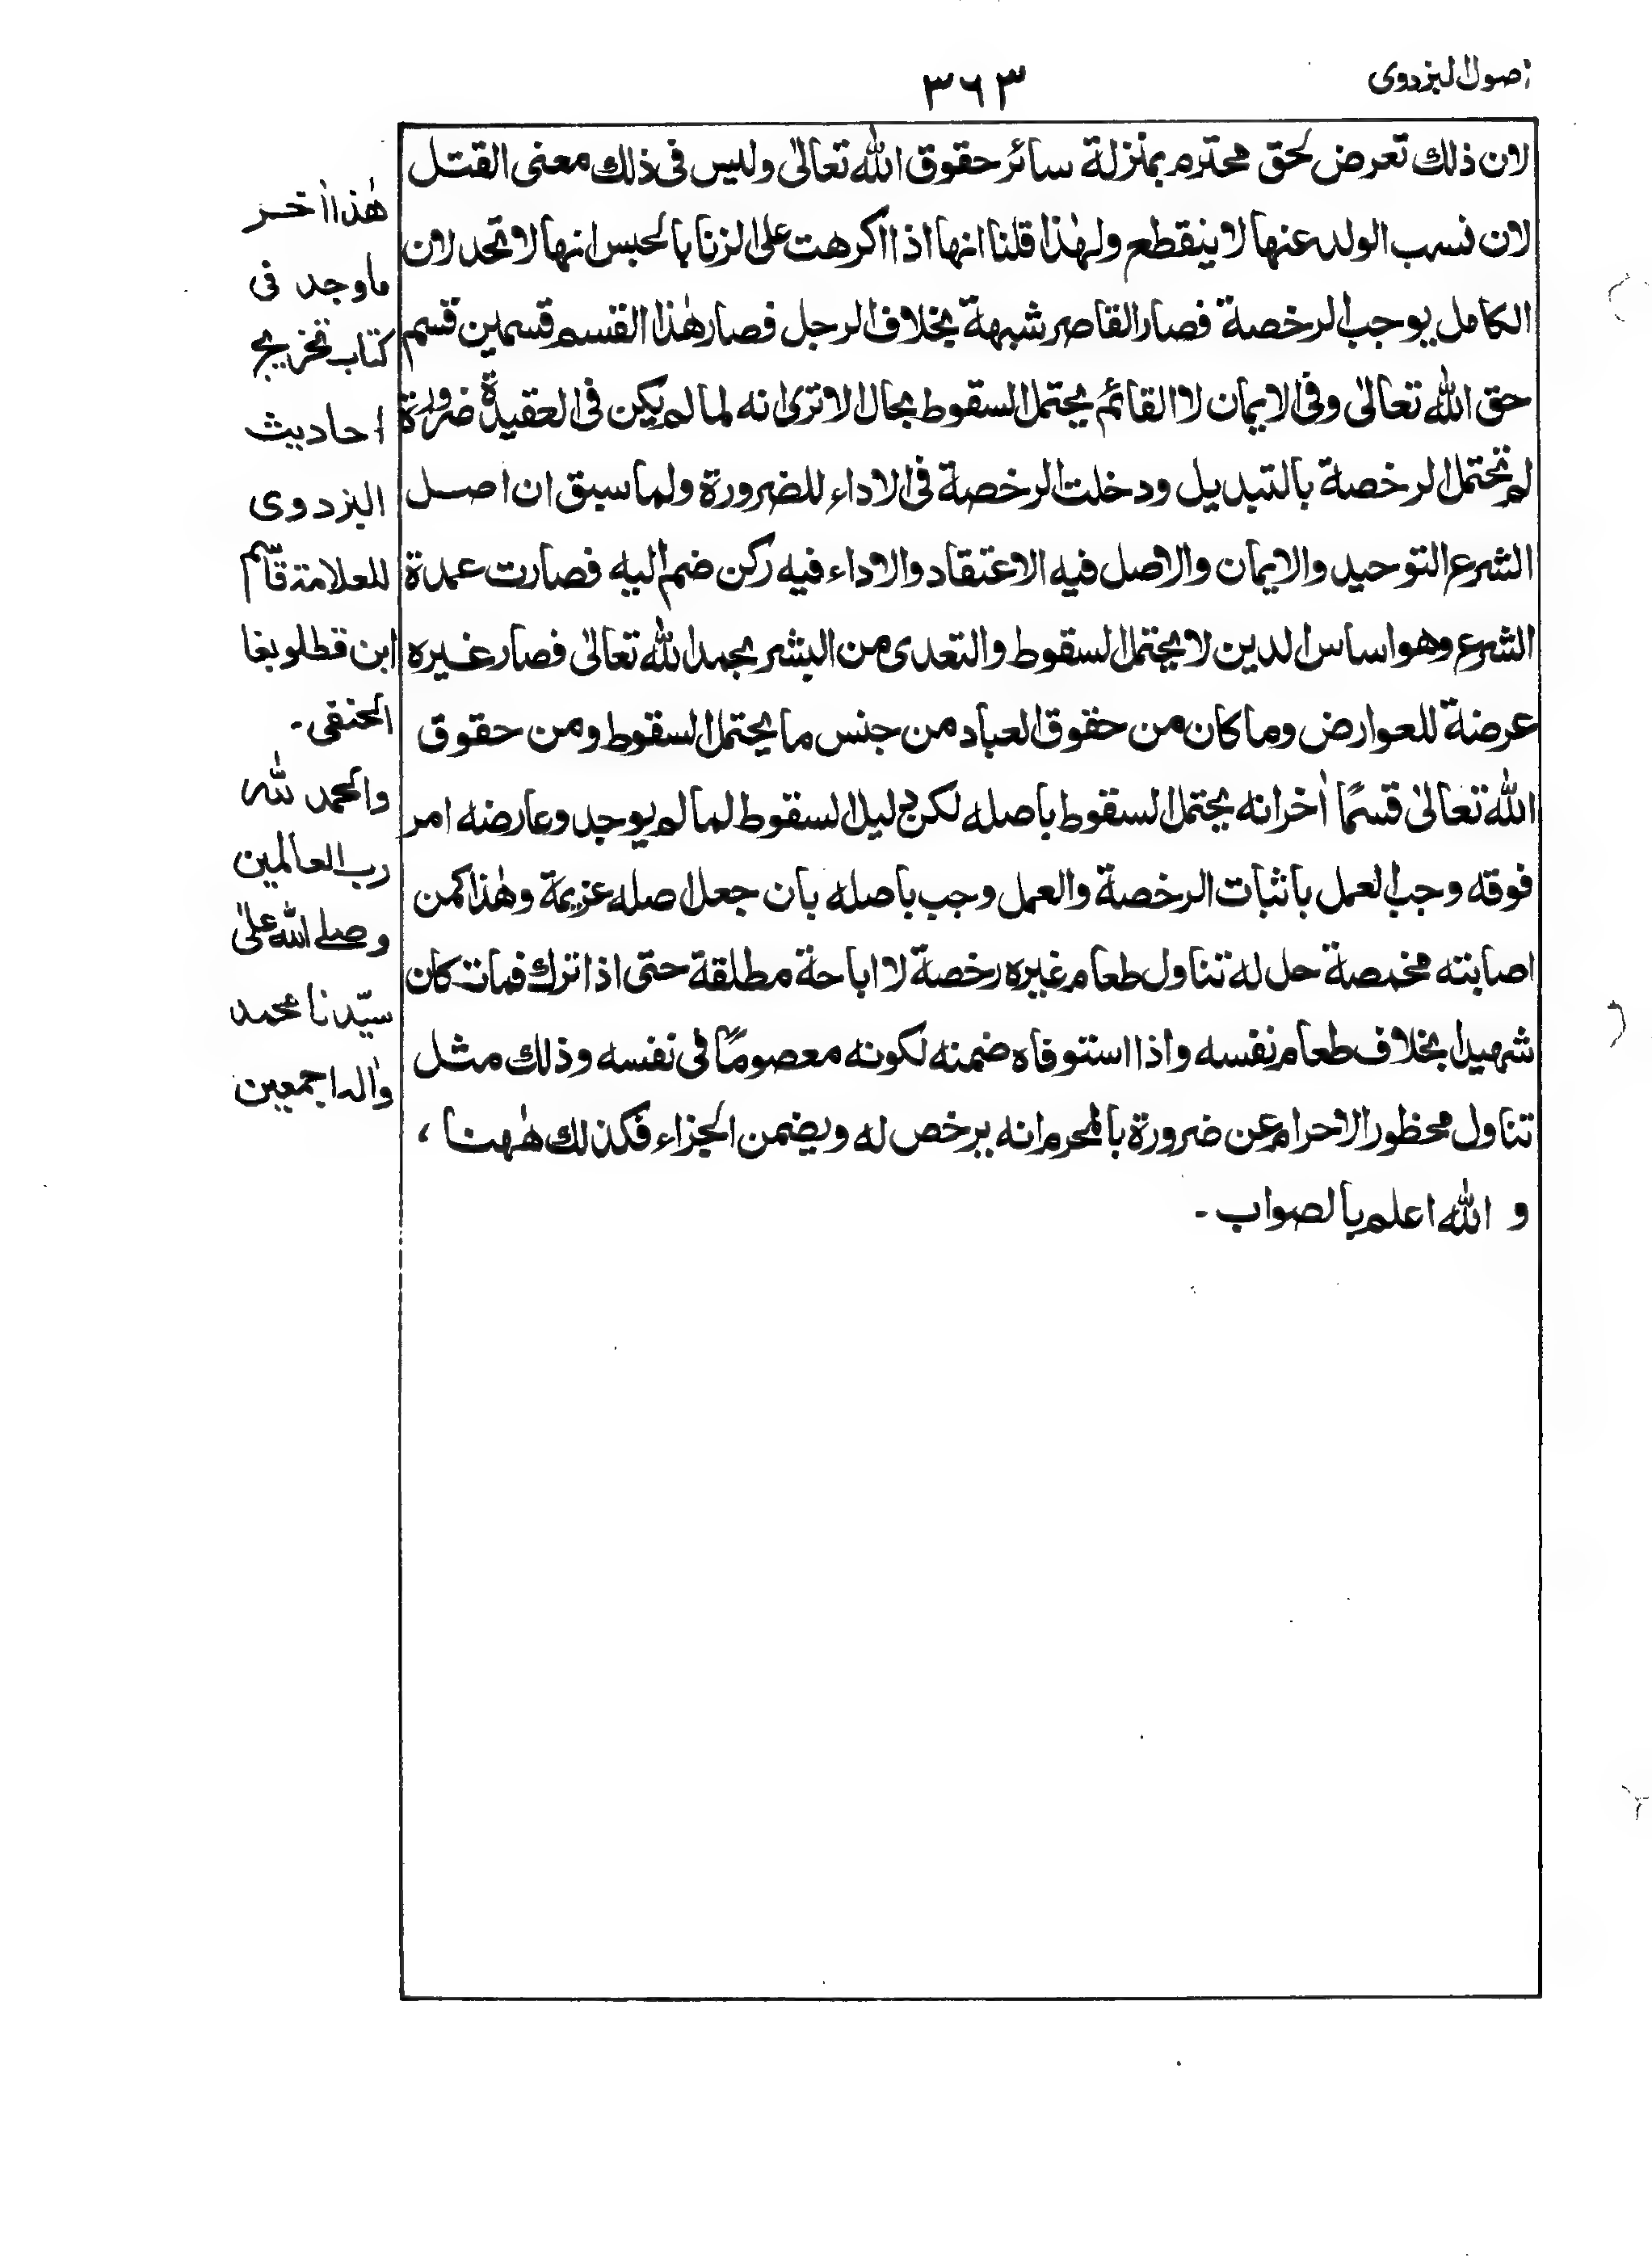 اصول البزدوی
٣٦٣
لان ذلك تعرض لحق محترم بمنزلة سائر حقوق الله تعالىٰ وليس فى ذلك معنى القتل
لان نسب الولد عنها لا ينقطع ولهٰذا قلنا انها اذا اكرهت على الزنا بالحبس انها لا تحد لان
الكامل يوجب الرخصة فصار القاصر شبهة بخلاف الرجل فصار هٰذا القسم قسمين قسم
حق الله تعالىٰ وفى الايمان لا القائم يحتمل السقوط بحال الا ترى انه لما لم يكن فى العقيدة ضرورة
لم تحتمل الرخصة بالتبديل ودخلت الرخصة فى الاداء للضرورة ولما سبق ان اصل
الشرع التوحيد والايمان والاصل فيه الاعتقاد والاداء فيه ركن ضم اليه فصارت عمدة
الشرع وهو اساس الدين لا يحتمل السقوط والتعدى من البشر بحمد الله تعالىٰ فصار غيره
عرضة للعوارض وما كان من حقوق العباد من جنس ما يحتمل السقوط ومن حقوق
الله تعالىٰ قسمًا اٰخر انه يحتمل السقوط باصله لكن دليل السقوط لما لم يوجد وعارضه امر
فوقه وجب العمل باثبات الرخصة والعمل وجب باصله بان جعل اصله عزيمة وهٰذا كمن
اصابته مخمصة حل له تناول طعام غيره رخصة لا اباحة مطلقة حتى اذا ترك فمات كان
شهيدا بخلاف طعام نفسه واذا استوفاه ضمنه لكونه معصومًا فى نفسه وذلك مثل
تناول محظور الاحرام عن ضرورة بالمحرم انه يرخص له ويضمن الجزاء فكذلك هٰهنا ،
و الله اعلم بالصواب -
هٰذا اٰخر
ما وجد فى
كتاب تخريج
احاديث
البزدوى
للعلامة قاسم
ابن قطلوبغا
الحنفى -
والحمد لله
رب العالمين
وصلے الله علىٰ
سيّدنا محمد
واٰله اجمعين